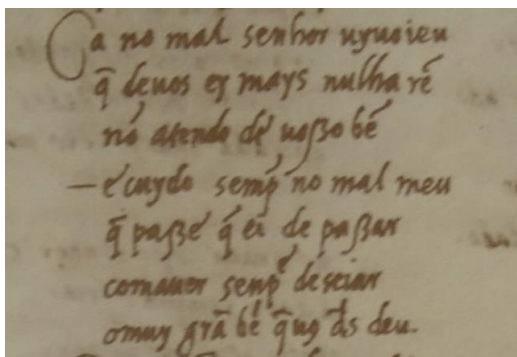 Ca no mal senhor uyuoieu
q̄ deuos ey mays nulha rē
nō atendo de uoßo bē
—e cuydo semp̄ no mal meu
q̄ paße q̄ ei de paßar
comauer semp̄ deseiar
omuy grā bē q̄uꝯ d̄s deu.